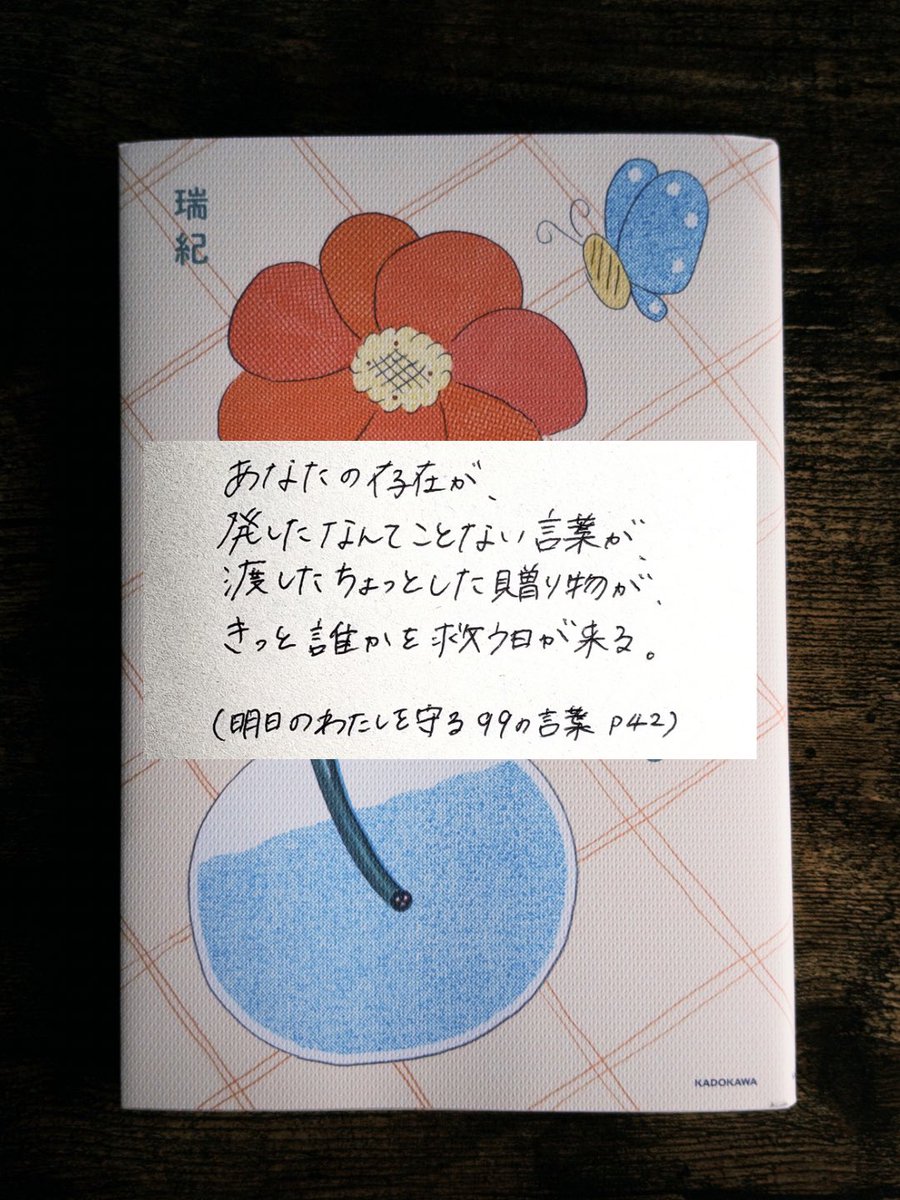 瑞紀
あなたの存在が、
発したなんてことない言葉が、
渡したちょっとした贈り物が、
きっと誰かを救う日が来る。
(明日のわたしを守る99の言葉 P42)
KADOKAWA